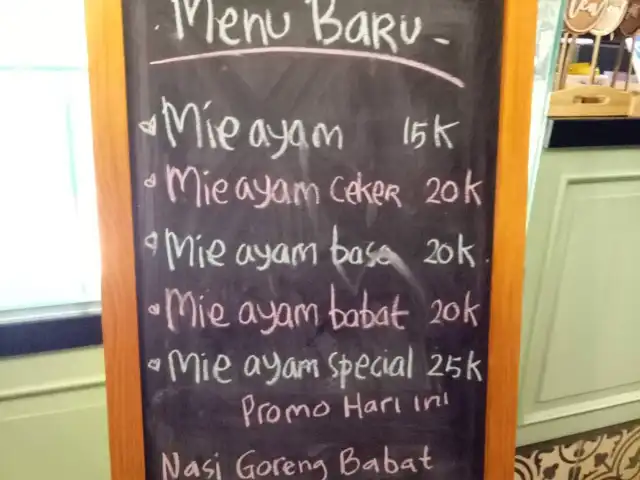 Menu Baru
Mie ayam 15K
Mie ayam ceker 20K
Mie ayam baso 20K
Mie ayam babat 20K
Mie ayam special 25K
Promo Hari ini
Nasi Goreng Babat